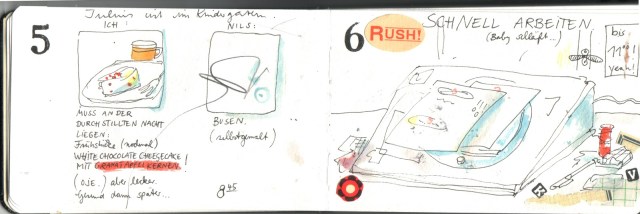 5
Julius ist im Kindergarten.
ICH:
NILS:
MUSS AN DER
DURCHSTILLTEN NACHT
LIEGEN:
Frühstücke (nochmal)
WHITE CHOCOLATE CHEESECAKE
MIT GRANATAPFELKERNEN!
(O.JE.) aber lecker.
dann später...
BUSEN.
(selbstgemalt)
8 45
6
RUSH!
SCHNELL ARBEITEN
(Baby schläft...)
bis
11
yeah!
K
V